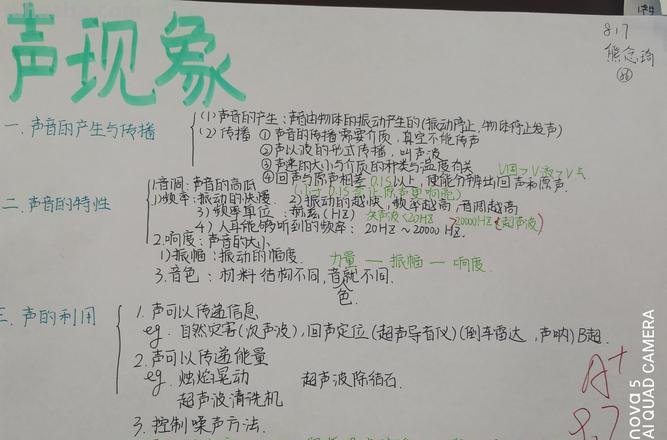 声现象
8.17
熊念琦
一、声音的产生与传播
(1) 声音的产生：声音由物体的振动产生的(振动停止,物体停止发声)
(2) 传播 ①声音的传播需要介质,真空不能传声
②声以波的形式传播,叫声波
③声速的大小与介质的种类与温度有关 V固>V液>V气
④回声与原声相差0.1S以上,便能分辨出回声和原声.
(小于0.1S 声音
二、声音的特性
1.音调：声音的高低
1)频率：振动的快慢. 2)振动的越快,频率越高,音调越高
3)频率单位：赫兹(HZ) 次声波<20HZ >20000HZ(超声波)
4)人耳能够听到的频率：20HZ~20000HZ.
2.响度：声音的大小
1)振幅：振动的幅度. 力量—振幅—响度
3.音色：材料结构不同,音就不同.
色
三.声的利用
1.声可以传递信息
eg. 自然灾害(次声波),回声定位(超声导盲仪)(倒车雷达,声呐)B超.
2.声可以传递能量
eg. 烛焰晃动 超声波除结石.
超声波清洗机
3.控制噪声方法.
A+
8.7
nova 5
AI QUAD CAMERA